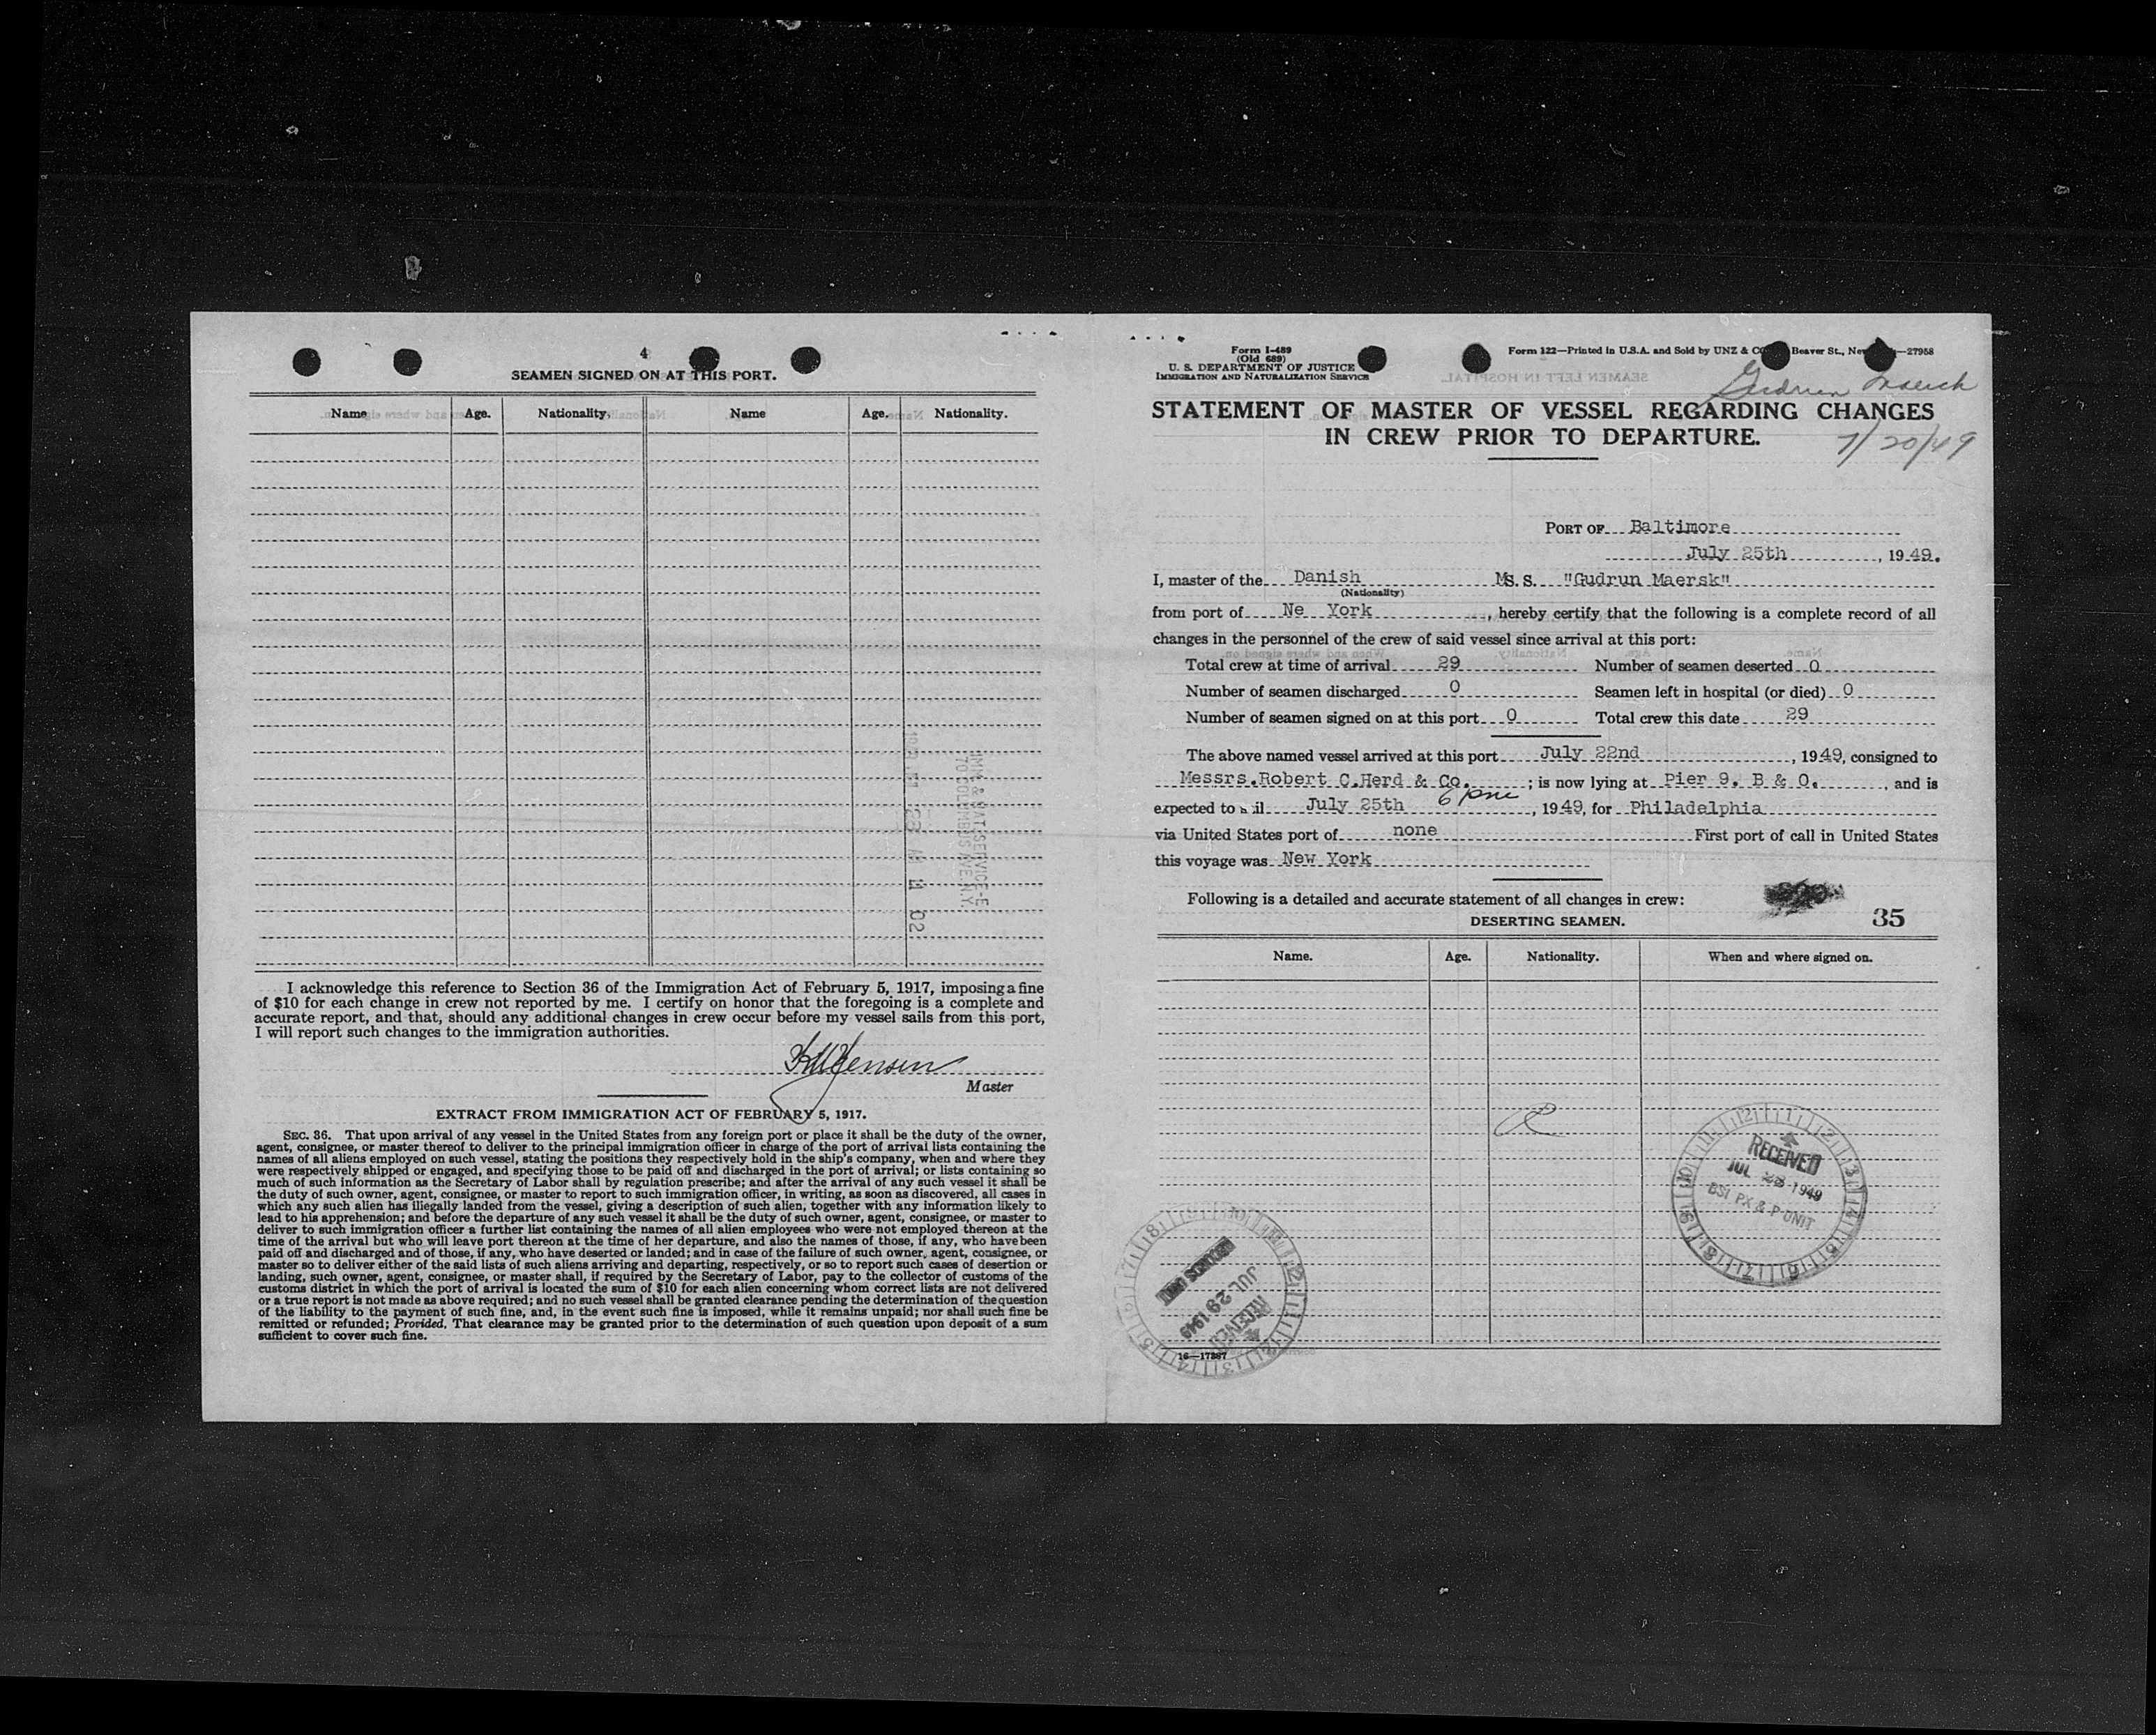 4
SEAMEN SIGNED ON AT THIS PORT.
Name Age. Nationality. Name Age. Nationality.
I acknowledge this reference to Section 36 of the Immigration Act of February 5, 1917, imposing a fine
of $10 for each change in crew not reported by me. I certify on honor that the foregoing is a complete and
accurate report, and that, should any additional changes in crew occur before my vessel sails from this port,
I will report such changes to the immigration authorities.
Jensen
Master
EXTRACT FROM IMMIGRATION ACT OF FEBRUARY 5, 1917.
SEC. 36. That upon arrival of any vessel in the United States from any foreign port or place it shall be the duty of the owner,
agent, consignee, or master thereof to deliver to the principal immigration officer in charge of the port of arrival lists containing the
names of all aliens employed on such vessel, stating the positions they respectively hold in the ship's company, when and where they
were respectively shipped or engaged, and specifying those to be paid off and discharged in the port of arrival; or lists containing so
much of such information as the Secretary of Labor shall by regulation prescribe; and after the arrival of any such vessel it shall be
the duty of such owner, agent, consignee, or master to report to such immigration officer, in writing, as soon as discovered, all cases in
which any such alien has illegally landed from the vessel, giving a description of such alien, together with any information likely to
lead to his apprehension; and before the departure of any such vessel it shall be the duty of such owner, agent, consignee, or master to
deliver to such immigration officer a further list containing the names of all alien employees who were not employed thereon at the
time of the arrival but who will leave port thereon at the time of her departure, and also the names of those, if any, who have been
paid off and discharged and of those, if any, who have deserted or landed; and in case of the failure of such owner, agent, consignee, or
master so to deliver either of the said lists of such aliens arriving and departing, respectively, or so to report such cases of desertion or
landing, such owner, agent, consignee, or master shall, if required by the Secretary of Labor, pay to the collector of customs of the
customs district in which the port of arrival is located the sum of $10 for each alien concerning whom correct lists are not delivered
or a true report is not made as above required; and no such vessel shall be granted clearance pending the determination of the question
of the liability to the payment of such fine, and, in the event such fine is imposed, while it remains unpaid; nor shall such fine be
remitted or refunded; Provided, That clearance may be granted prior to the determination of such question upon deposit of a sum
sufficient to cover such fine.
Form I-489
(Old 689)
U. S. DEPARTMENT OF JUSTICE
IMMIGRATION AND NATURALIZATION SERVICE
Form 122—Printed in U.S.A. and Sold by UNZ & CO Beaver St., New —27958
Gudrun Maersk
STATEMENT OF MASTER OF VESSEL REGARDING CHANGES
IN CREW PRIOR TO DEPARTURE.
7/20/49
PORT OF Baltimore
July 25th, 1949.
I, master of the Danish MS. S. "Gudrun Maersk"
(Nationality)
from port of Ne York, hereby certify that the following is a complete record of all
changes in the personnel of the crew of said vessel since arrival at this port:
Total crew at time of arrival 29 Number of seamen deserted 0
Number of seamen discharged 0 Seamen left in hospital (or died) 0
Number of seamen signed on at this port 0 Total crew this date 29
The above named vessel arrived at this port July 22nd, 1949, consigned to
Messrs.Robert C.Herd & Co.; is now lying at Pier 9. B & O., and is
expected to sail July 25th 6 pm, 1949, for Philadelphia
via United States port of none First port of call in United States
this voyage was New York
Following is a detailed and accurate statement of all changes in crew:
35
DESERTING SEAMEN.
Name. Age. Nationality. When and where signed on.
RECEIVED
JUL 1949
BSI PX & P UNIT
RECEIVED
JUL 29 1949
16—17387